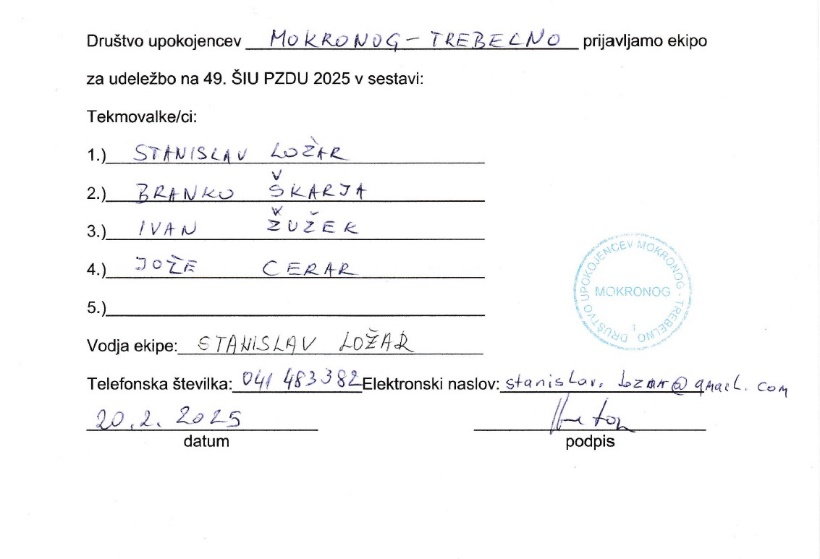 Društvo upokojencev MOKRONOG - TREBELNO prijavljamo ekipo
za udeležbo na 49. ŠIU PZDU 2025 v sestavi:
Tekmovalke/ci:
1.) STANISLAV LOŽAR
2.) BRANKO ŠKARJA
3.) IVAN ŽUŽEK
4.) JOŽE CERAR
5.)
DRUŠTVO UPOKOJENCEV MOKRONOG - TREBELNO
MOKRONOG
1
Vodja ekipe: STANISLAV LOŽAR
Telefonska številka: 041 483382 Elektronski naslov: stanislav.lozar@gmail.com
20.2.2025
datum podpis